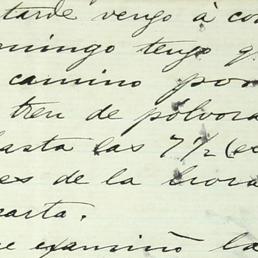 tarde vengo à co
mingo tengo q
camino por
tren de pólvora
asta las 7 1/2 (e
es de la hora
carta.
e examinò la